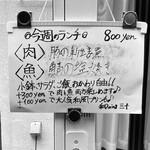 今週のランチ 800yen
〈肉〉豚の生姜
〈魚〉鯖の
小鉢・サラダ、ご飯おかわり自由!!
+300yenで肉&魚両方楽しめます♪
+100yenで大人気和風プリン